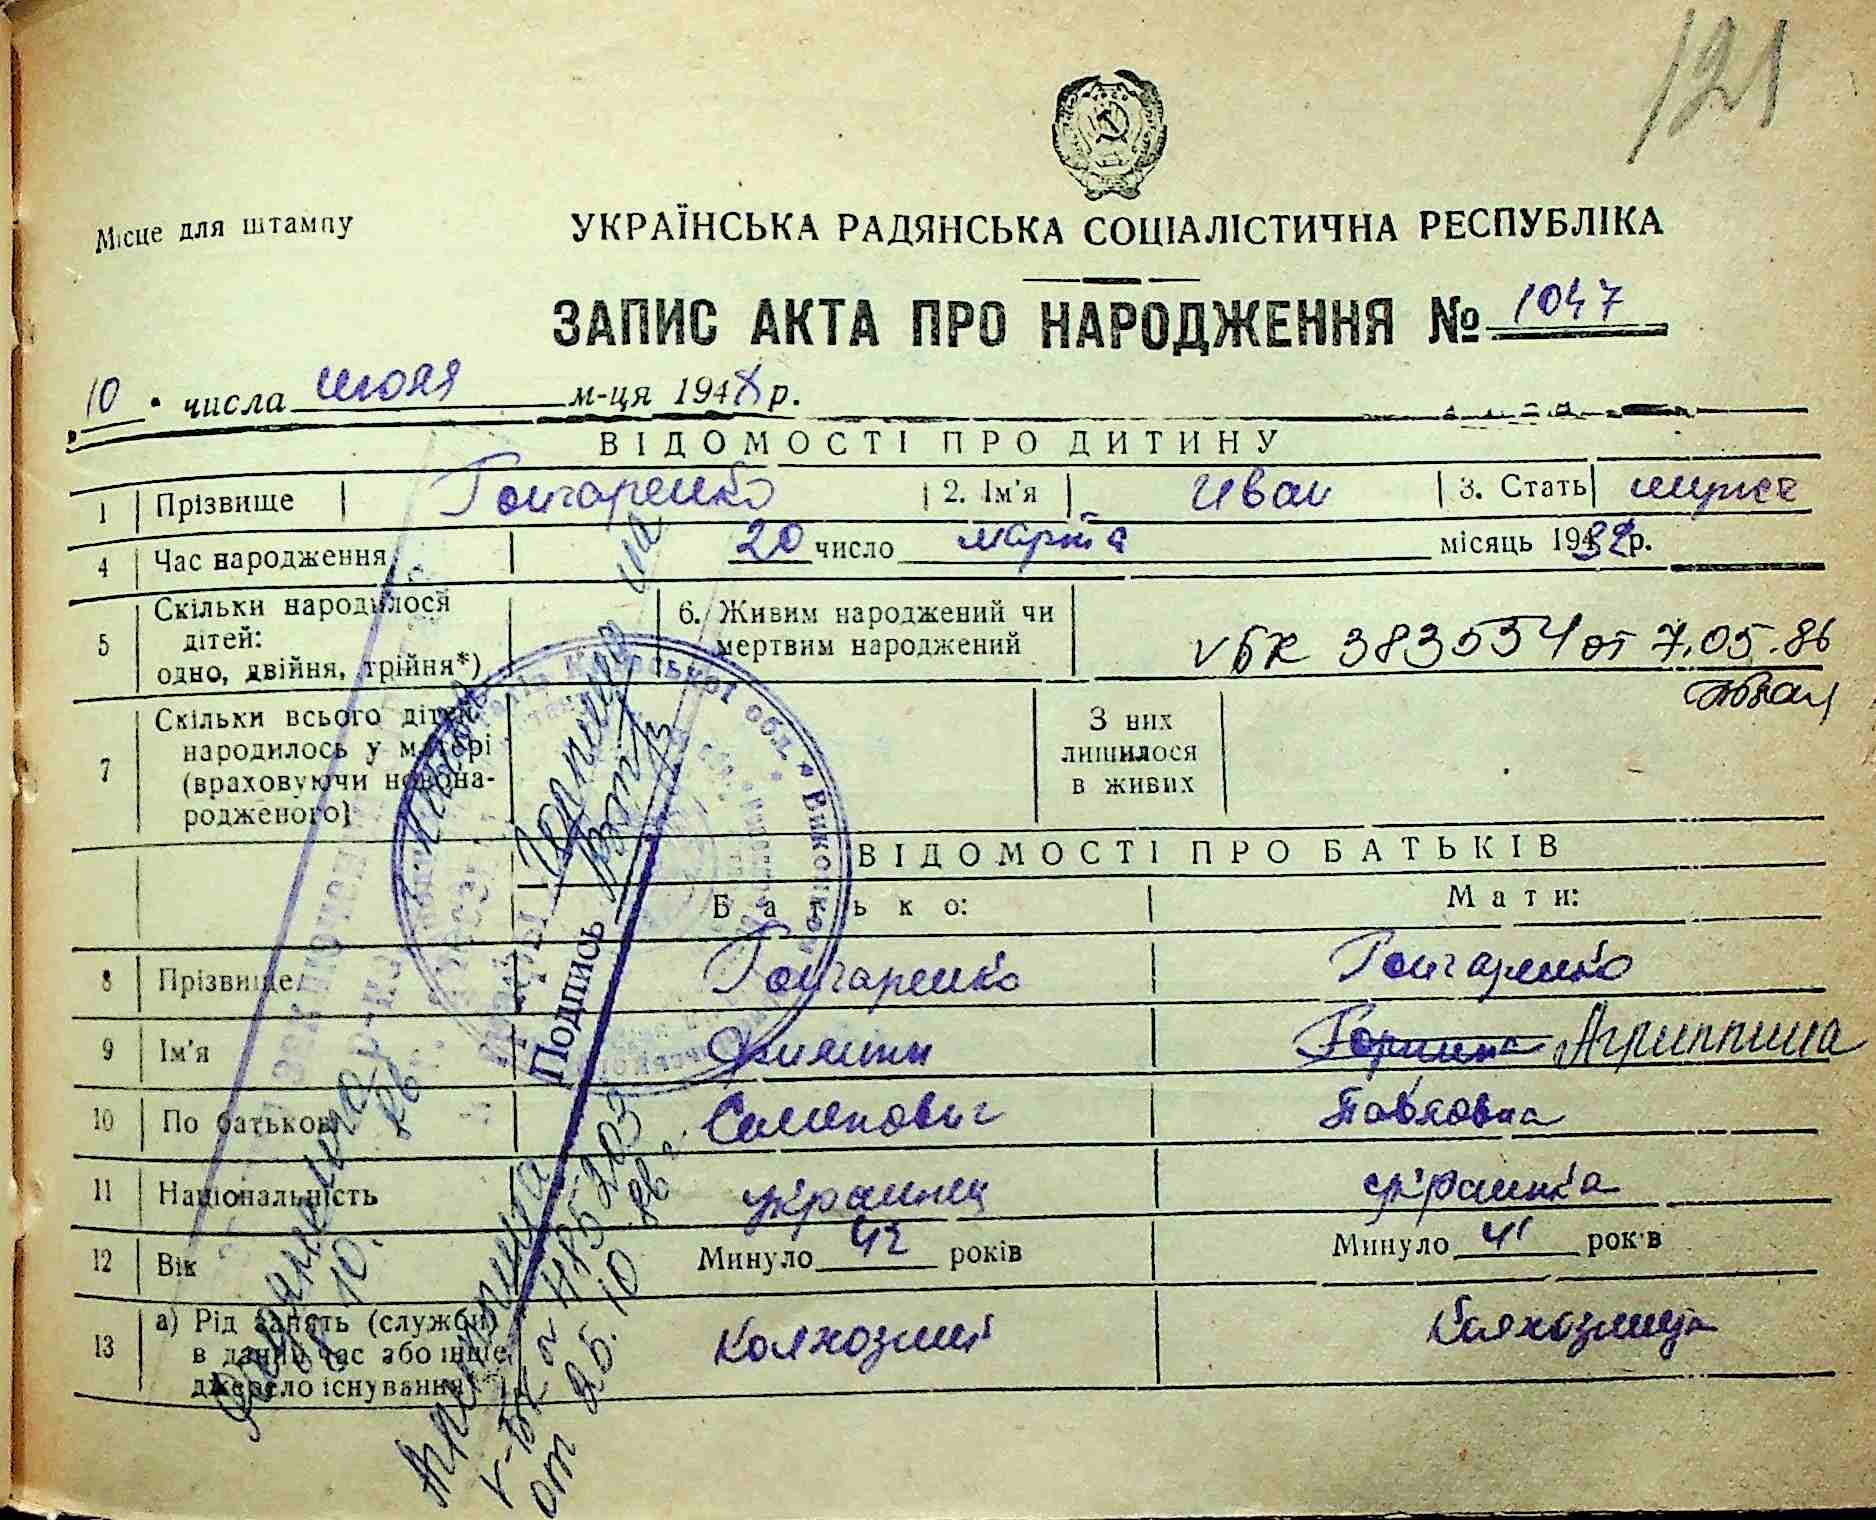 121
Місце для штампу
УКРАЇНСЬКА РАДЯНСЬКА СОЦІАЛІСТИЧНА РЕСПУБЛІКА
ЗАПИС АКТА ПРО НАРОДЖЕННЯ № 1047
10 числа июля м-ця 1948 р.
ВІДОМОСТІ ПРО ДИТИНУ
1 Прізвище Гончаренко 2. Ім'я Иван 3. Стать мужс
4 Час народження 20 число марта місяць 1932 р.
5 Скільки народилося дітей: одно, двійня, трійня*) 6. Живим народжений чи мертвим народжений
V БК 383554 от 7.05.86
7 Скільки всього дітей народилось у матері (враховуючи новонародженого) З них лишилося в живих
ВІДОМОСТІ ПРО БАТЬКІВ
Батько: Мати:
8 Прізвище Гончаренко Гончаренко
9 Ім'я Филипп Горпина Агриппина
10 По батькові Семенович Павловна
11 Національність украинец украинка
12 Вік Минуло 42 років Минуло 41 років
13 а) Рід занять (служби) в даний час або інше джерело існування Колхозник Колхозница
Подпись
Горпина на
Агриппина
V-БК
от 26.10.86 г.